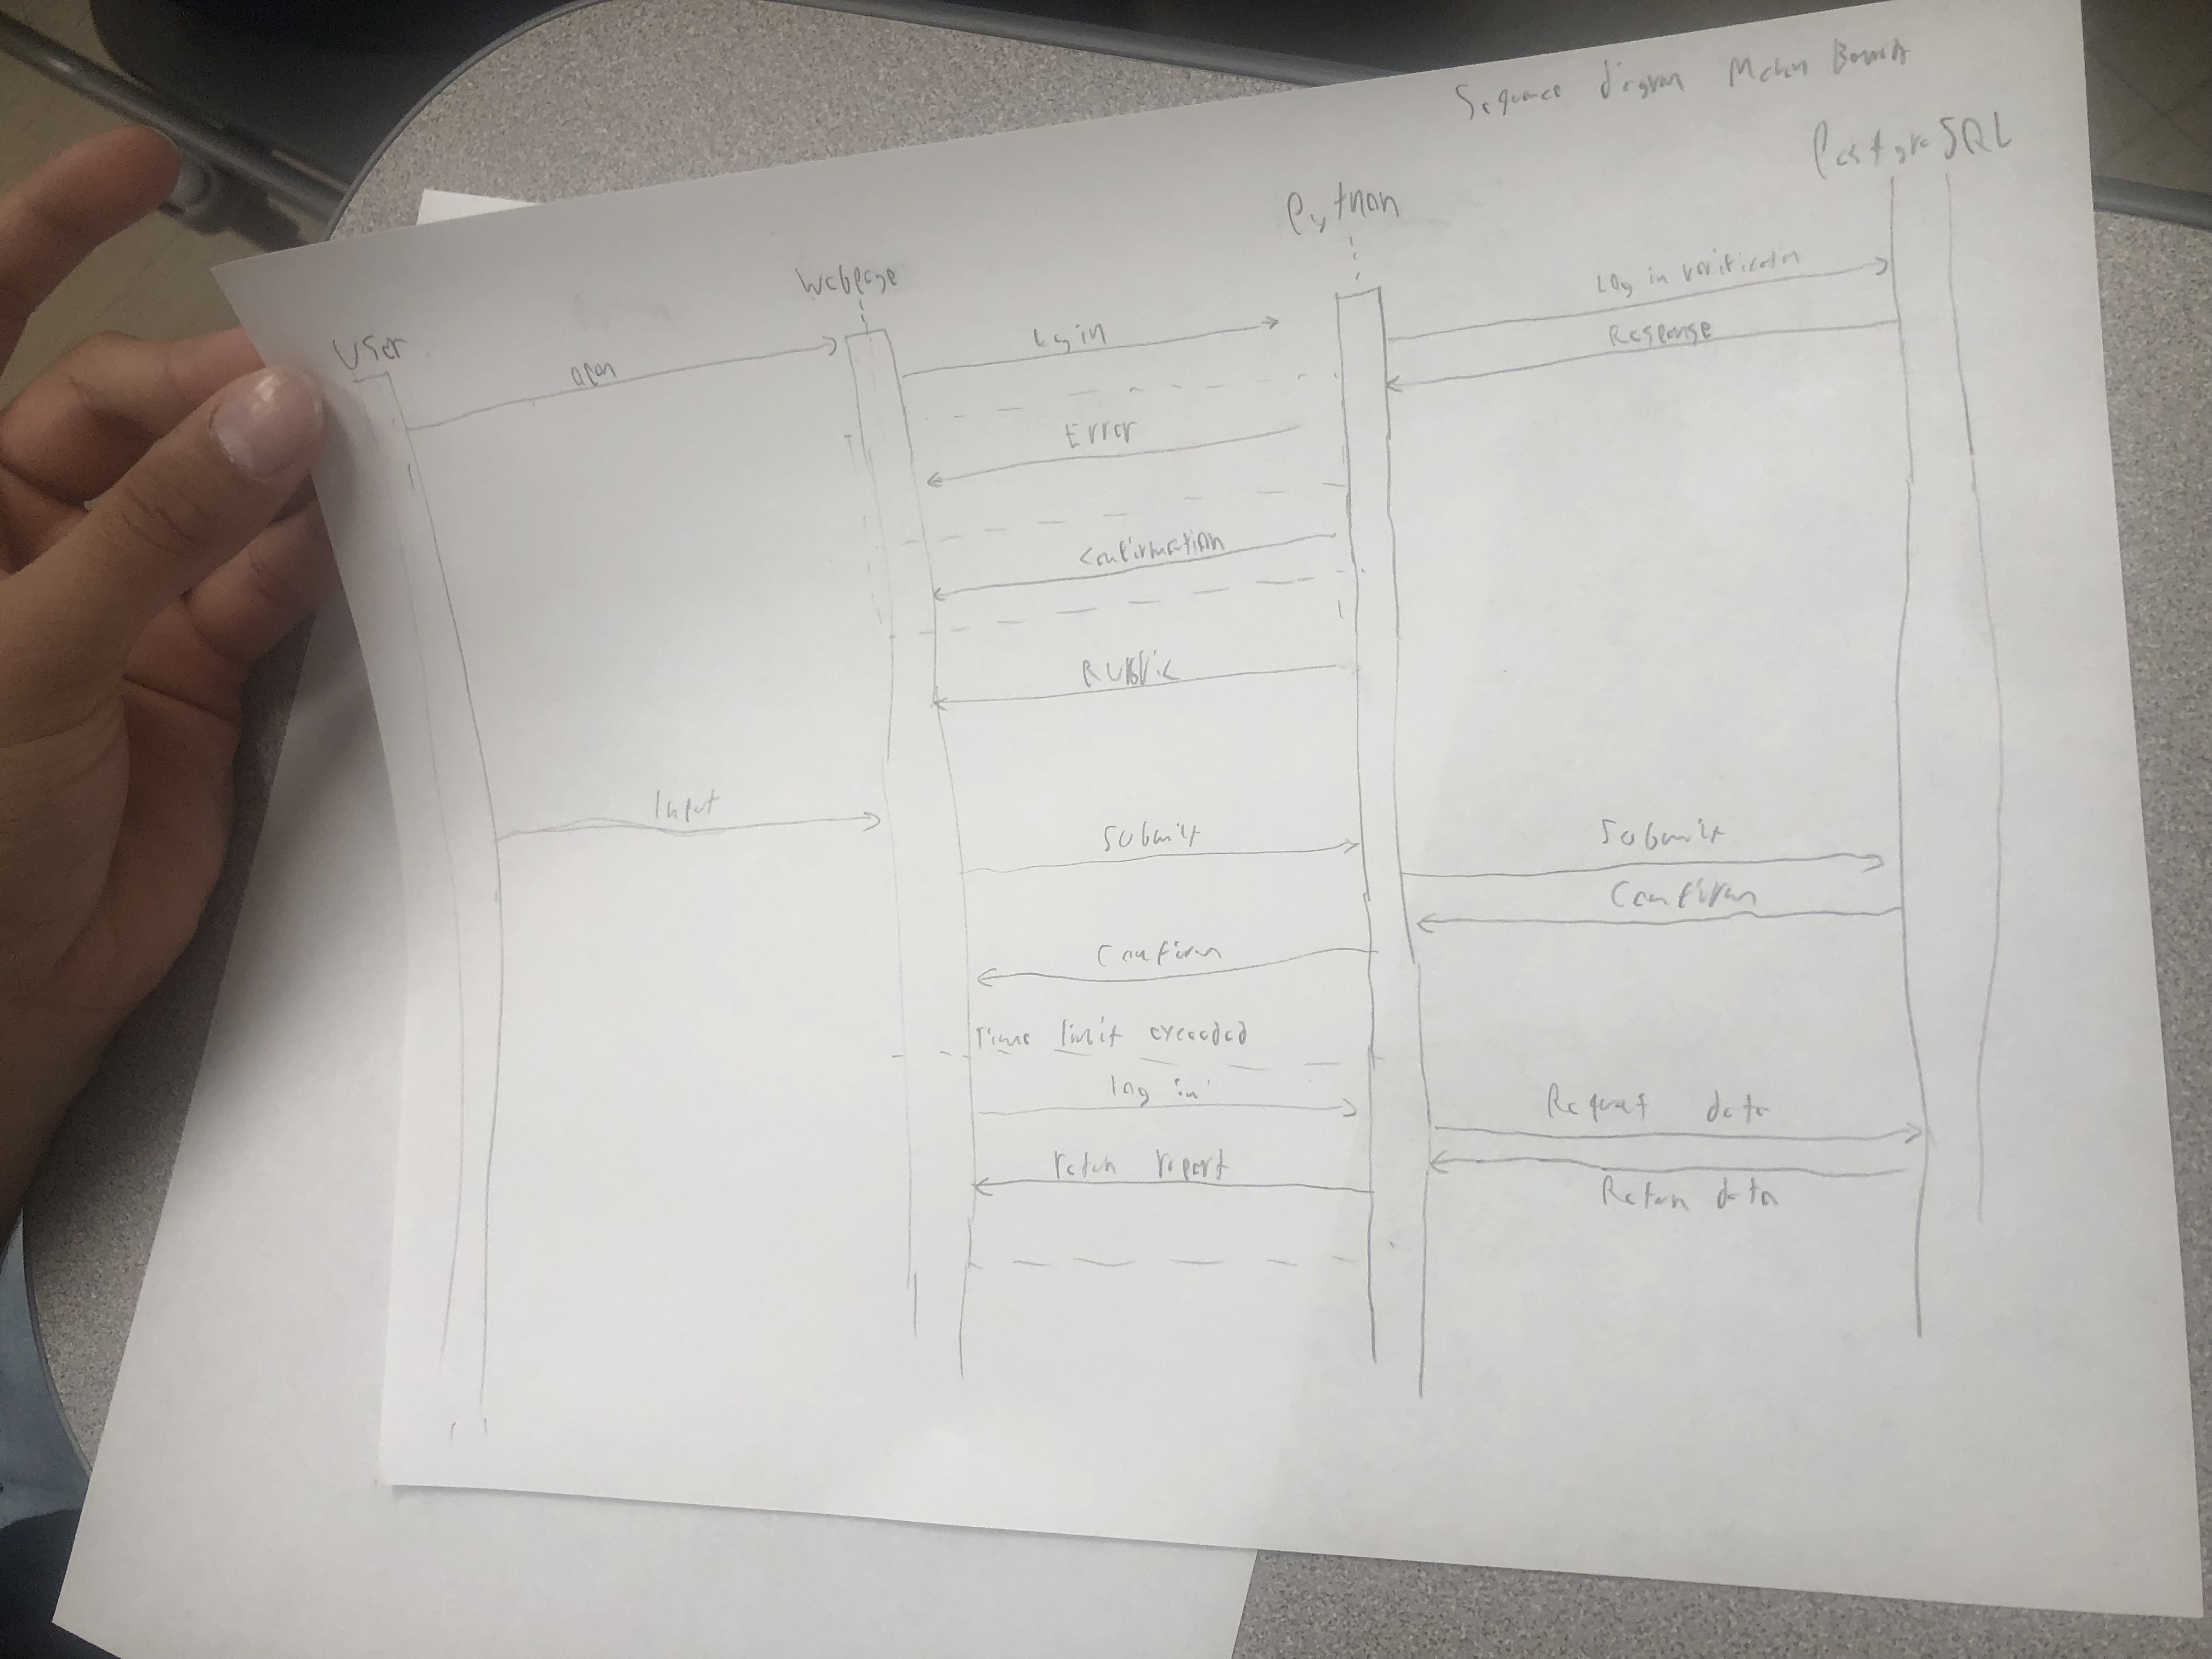 Sequence diagram
PostgreSQL
Python
Webpage
User
Log in verification
Log in
open
Response
Error
confirmation
Rubric
Input
Submit
Submit
Confirm
Confirm
Time limit exceeded
log in
Request data
return report
Return data